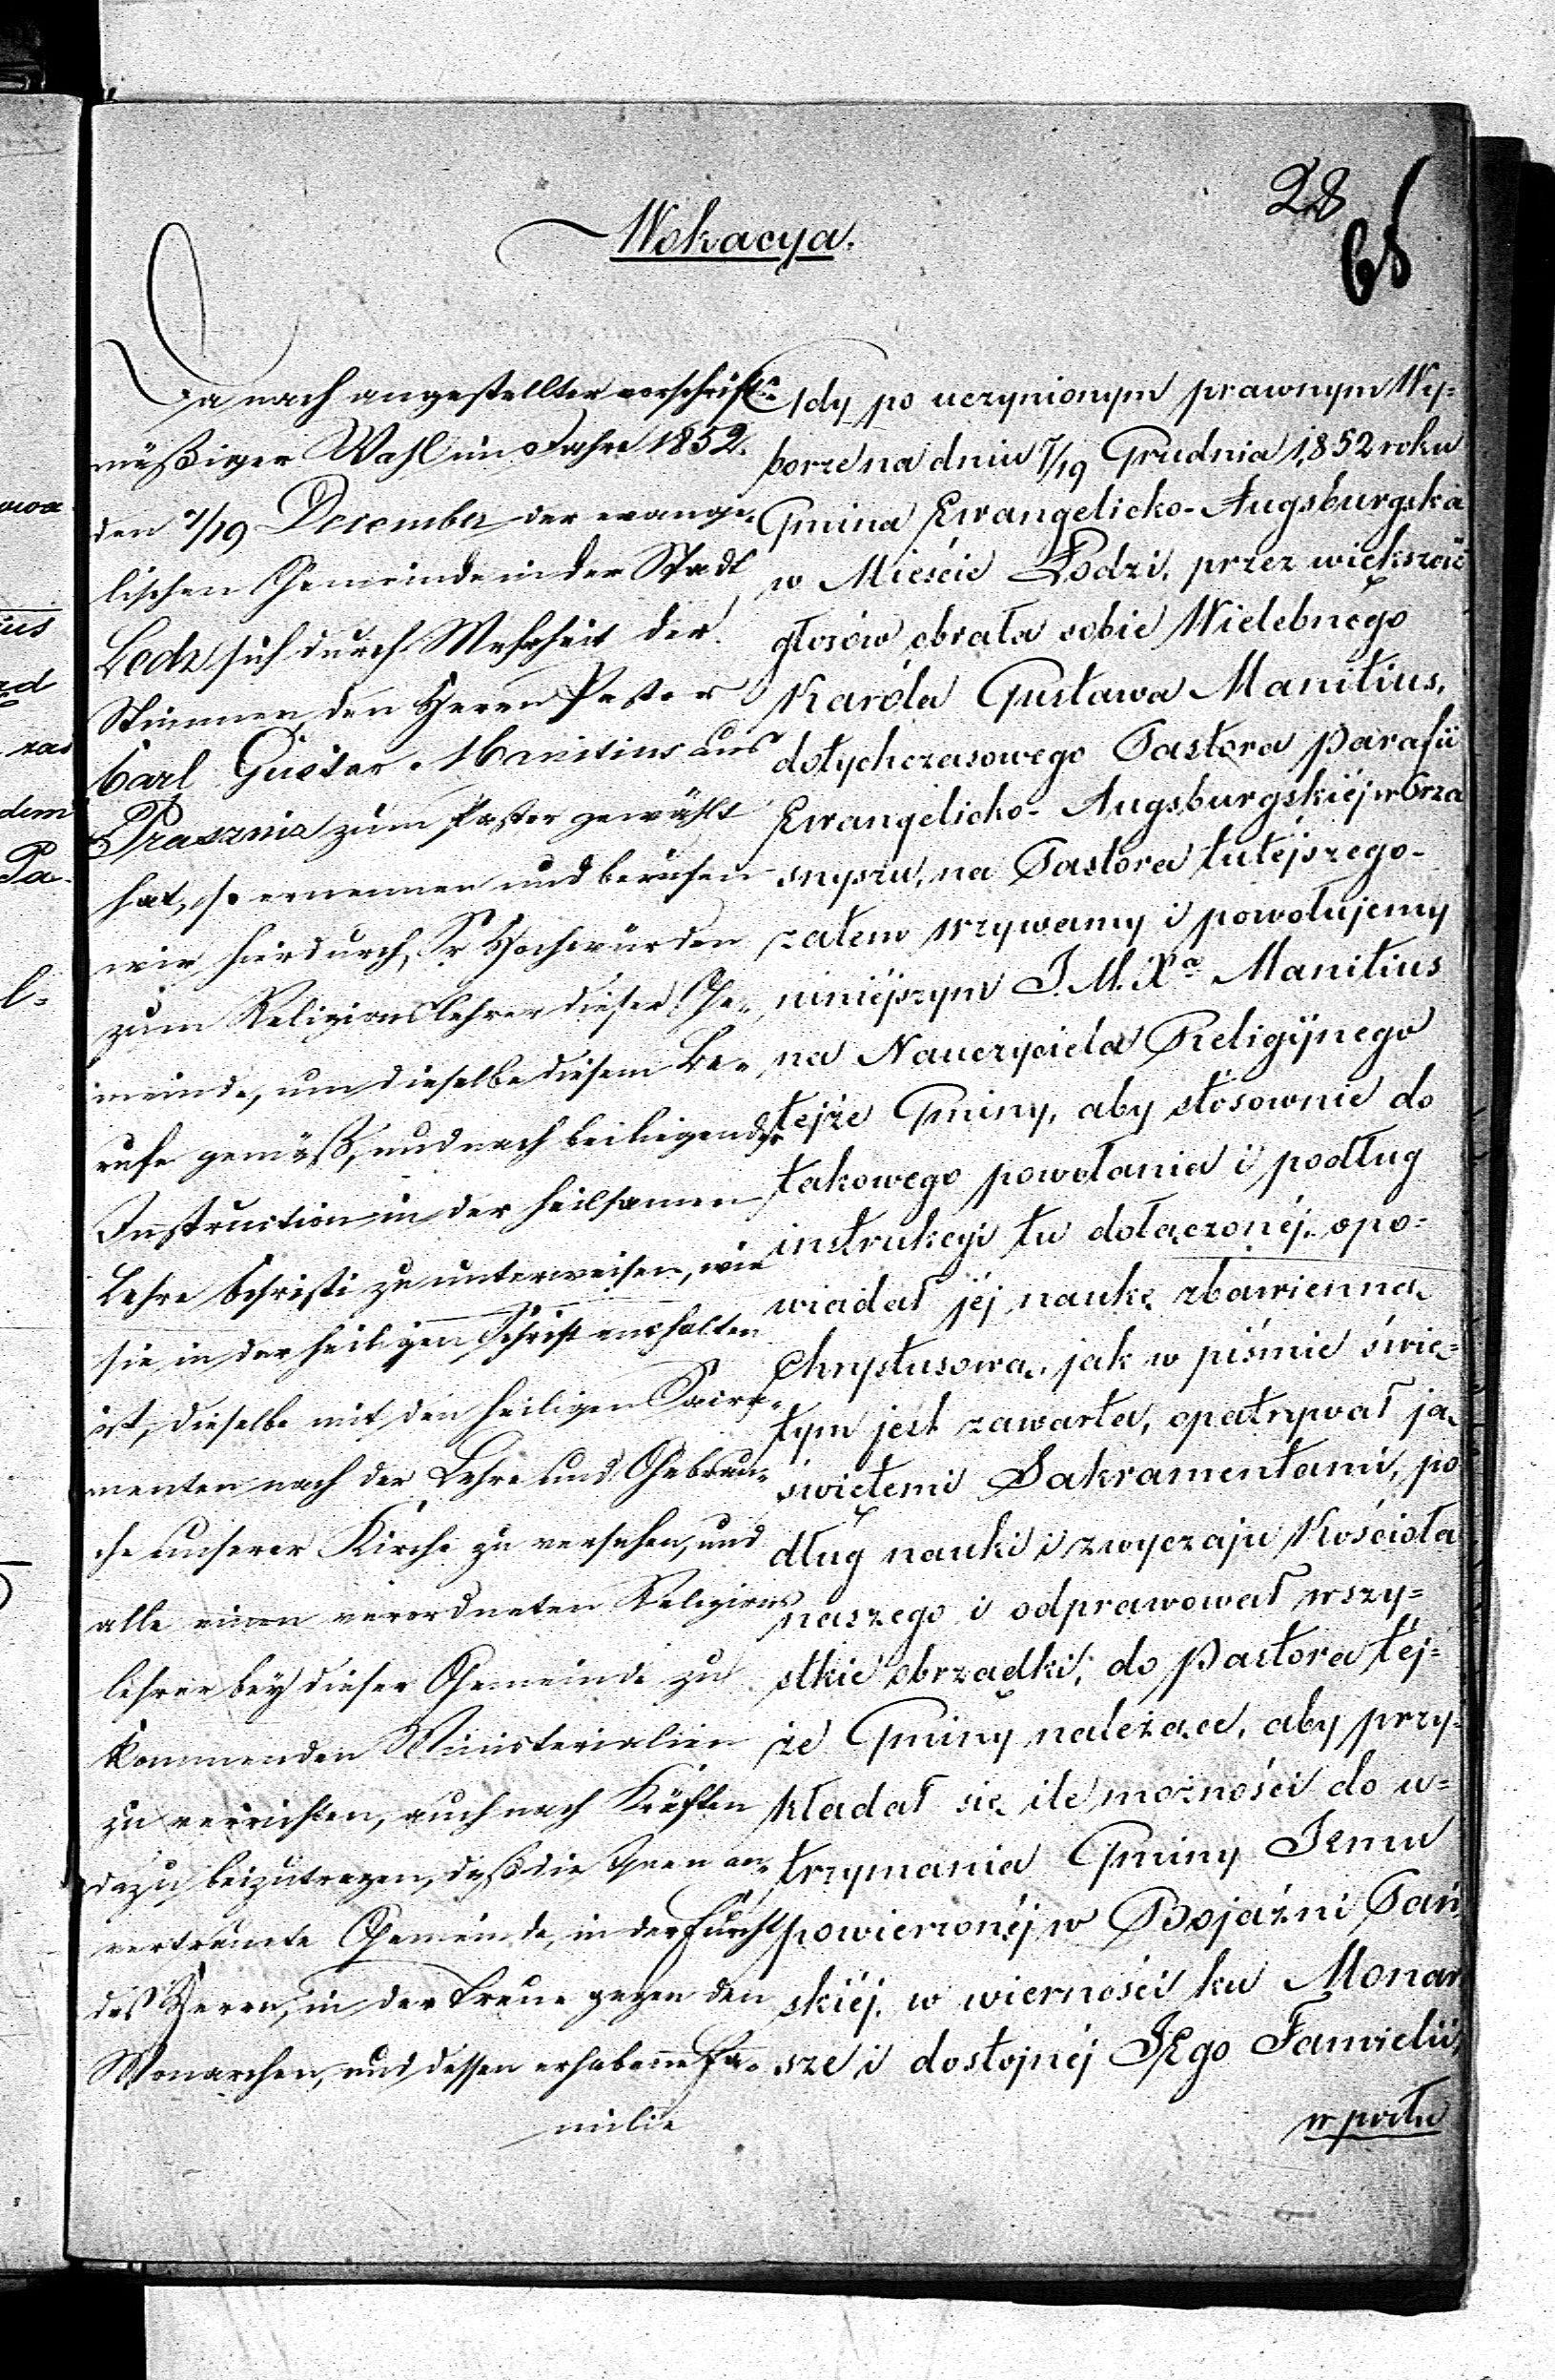 28
68
Wokacya.
Da nach angestellter vorschrift-
mäßiger Wahl im Jahre 1852.
den 7/19 December der evange-
lischen Gemeinde in der Stadt
Lodz sich durch Mehrheit der
Stimmen den Herrn Pastor
Carl Gustav Manitius aus
Prasznic zum Pastor gewählt
hat, so ernennen und berufen
wir hierdurch, Sr Hochwürden
zum Religionslehrer dieser Ge-
meinde, um dieselbe diesem Be-
rufe gemäß, und nach beiliegender
Instruction in der heilsamen
Lehre Christi zu unterweisen, wie
sie in der heiligen Schrift enthalten
ist, dieselbe mit den heiligen Sacra-
menten nach der Lehre und Gebräu-
che unserer Kirche zu versehen, und
alle einen verordneten Religions
lehrer bey dieser Gemeinde zu
kommenden Ministerialien
zu verrichten, auch nach Kräften
dazu beizutragen, daß die Ihnen an-
vertraute Gemeinde, in der Furcht
des Herrn, in der Treue gegen den
Monarchen, und dessen erhabene Fa-
milie
Gdy po uczynionym prawnym Wy-
borze na dniu 7/19 Grudnia 1852 roku
Gmina Ewangelicko-Augsburgska
w Mieście Łodzi, przez większość
głosów obrała sobie Wielebnego
Karóla Gustawa Manitius,
dotychczasowego Pastora Parafii
Ewangelicko-Augsburgskiéj w Prza
snyszu, na Pastora tutéjszego-
zatem wzywamy i powołujemy
niniéjszym J. M. Xa Manitius
na Nauczyciela Religijnego
téjże Gminy, aby stósownie do
takowego powołania i podług
instrukcyi tu dołączonéj, opo-
wiadał jéj naukę zbawienną
Chrystusową, jak w piśmie świę-
tym jest zawarta, opatrywał ją
świętemi Sakramentami, po
dług nauki i zwyczaju Kościoła
naszego i odprawował wszy-
stkie obrządki, do Pastora téj-
że Gminy należące, aby przy-
kładał się ile możności do u-
trzymania Gminy Jemu
powierzonéj w Bojaźni Pań
skiéj, w wierności ku Monar
sze i dostojnéj JEgo Familii,
w posłu